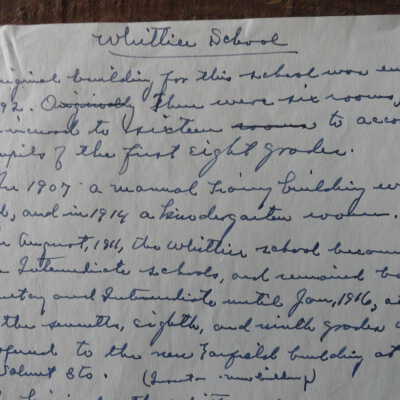 Whittier School
riginal building for this school was e
92. Originally There were six rooms,
incresed to sixteen rooms to acco
upils of the first eight grades.
In 1907 a manual building w
d, and in 1914 a kindergarten
n August, 1911, the Whittier school becom
Intermediate schools, and remained b
and Intermediate until Jan, 1916, a
the seventh, eighth, and ninth grades
to the new Garfield building at
Walnut Sts.